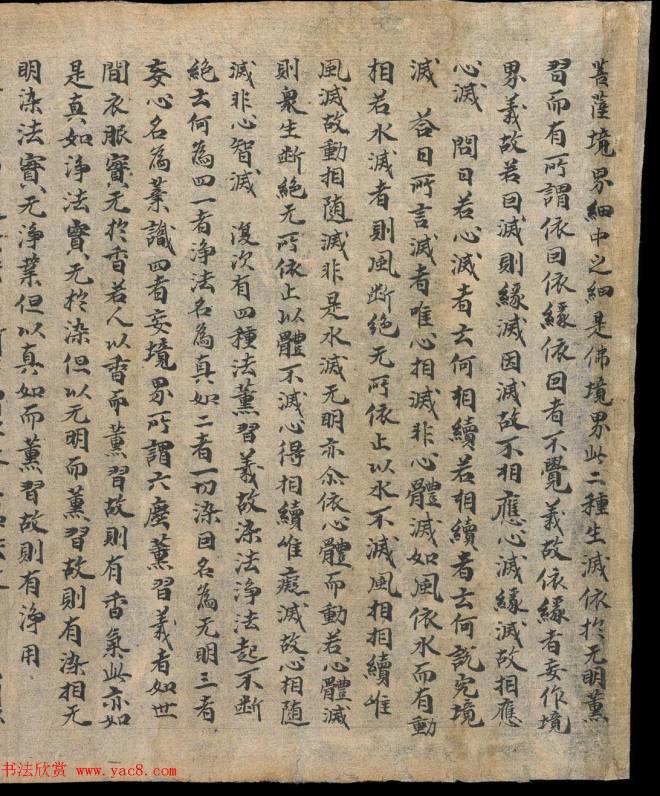 菩薩境界細中之細是佛境界此二種生滅依於无明薰
習而有所謂依因依緣依因者不覺義故依緣者妄作境
界義故若因滅則緣滅因滅故不相應心滅緣滅故相應
心滅 問曰若心滅者云何相續若相續者云何說究境
滅 荅曰所言滅者唯心相滅非心體滅如風依水而有動
相若水滅者則風斷絕无所依止以水不滅風相相續唯
風滅故動相随滅非是水滅无明亦尒依心體而動若心體滅
則衆生斷絕无所依止以體不滅心得相續唯癡滅故心相随
滅非心智滅 復次有四種法薰習義故染法淨法起不斷
絕云何為四一者淨法名為真如二者一切染因名為无明三者
妄心名為業識四者妄境界所謂六塵薰習義者如世
間衣服實无於香若人以香而薰習故則有香氣此亦如
是真如淨法實无於染但以无明而薰習故則有染相无
明染法實无淨業但以真如而薰習故則有淨用
书法欣赏 www.yac8.com